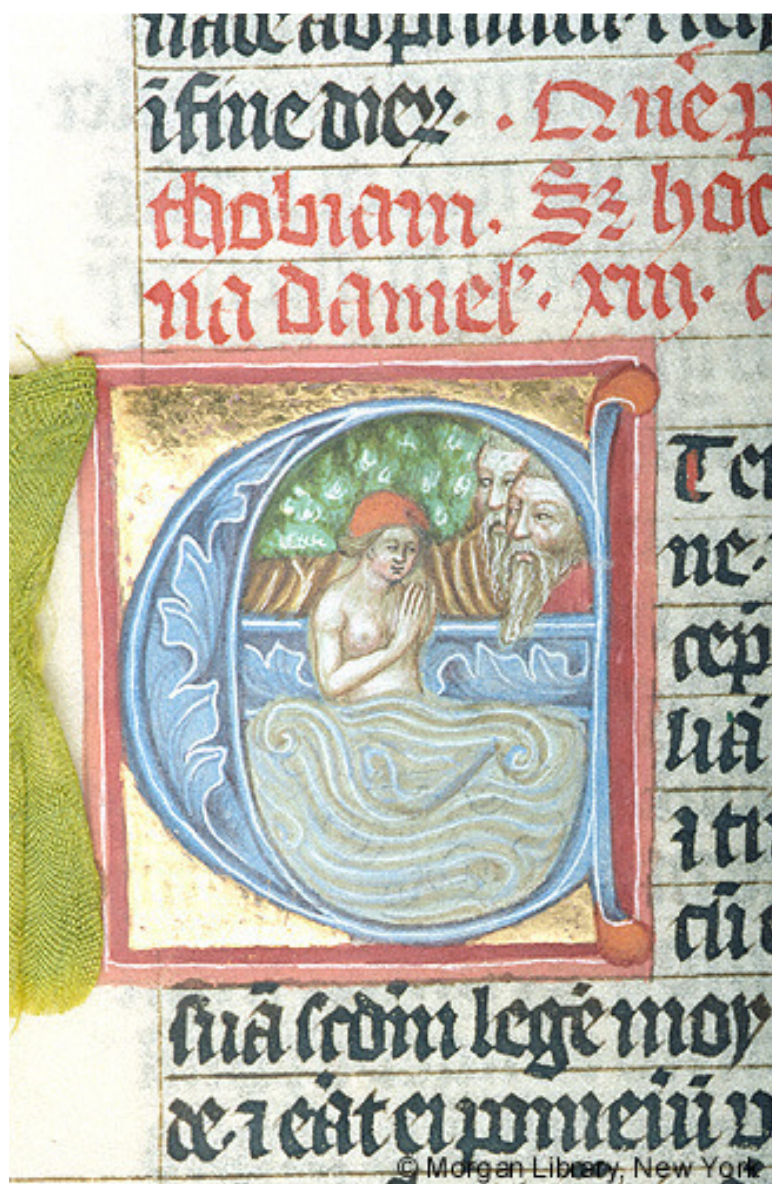 ī fine dieꝝ. Quē p
thobiam. Sꝫ hoc
na daniel'. xiii. c
E
T er
ne.
cep̄
liā
⁊ ti
cū e
suā scd̄m legē moy
de. ⁊ eāt ei pomeiū v
© Morgan Library, New York